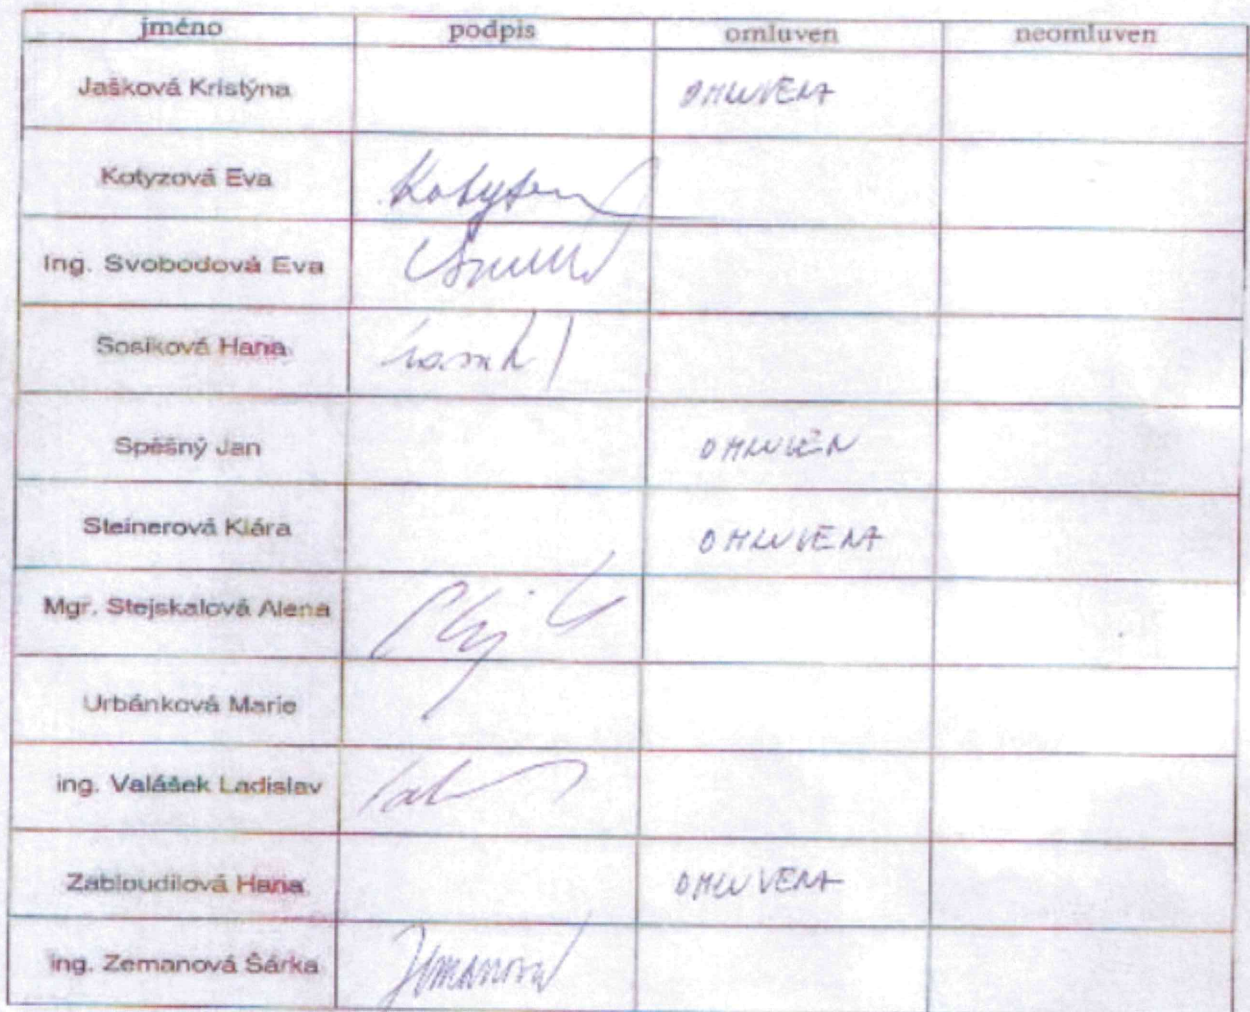 jméno podpis omluven neomluven
Jašková Kristýna OMLUVENA
Kotyzová Eva
Ing. Svobodová Eva
Sosíková Hana
Spěšný Jan OMLUVEN
Steinerová Klára OMLUVENA
Mgr. Stejskalová Alena
Urbánková Marie
ing. Valášek Ladislav
Zabloudilová Hana OMLUVENA
ing. Zemanová Šárka Zemanová